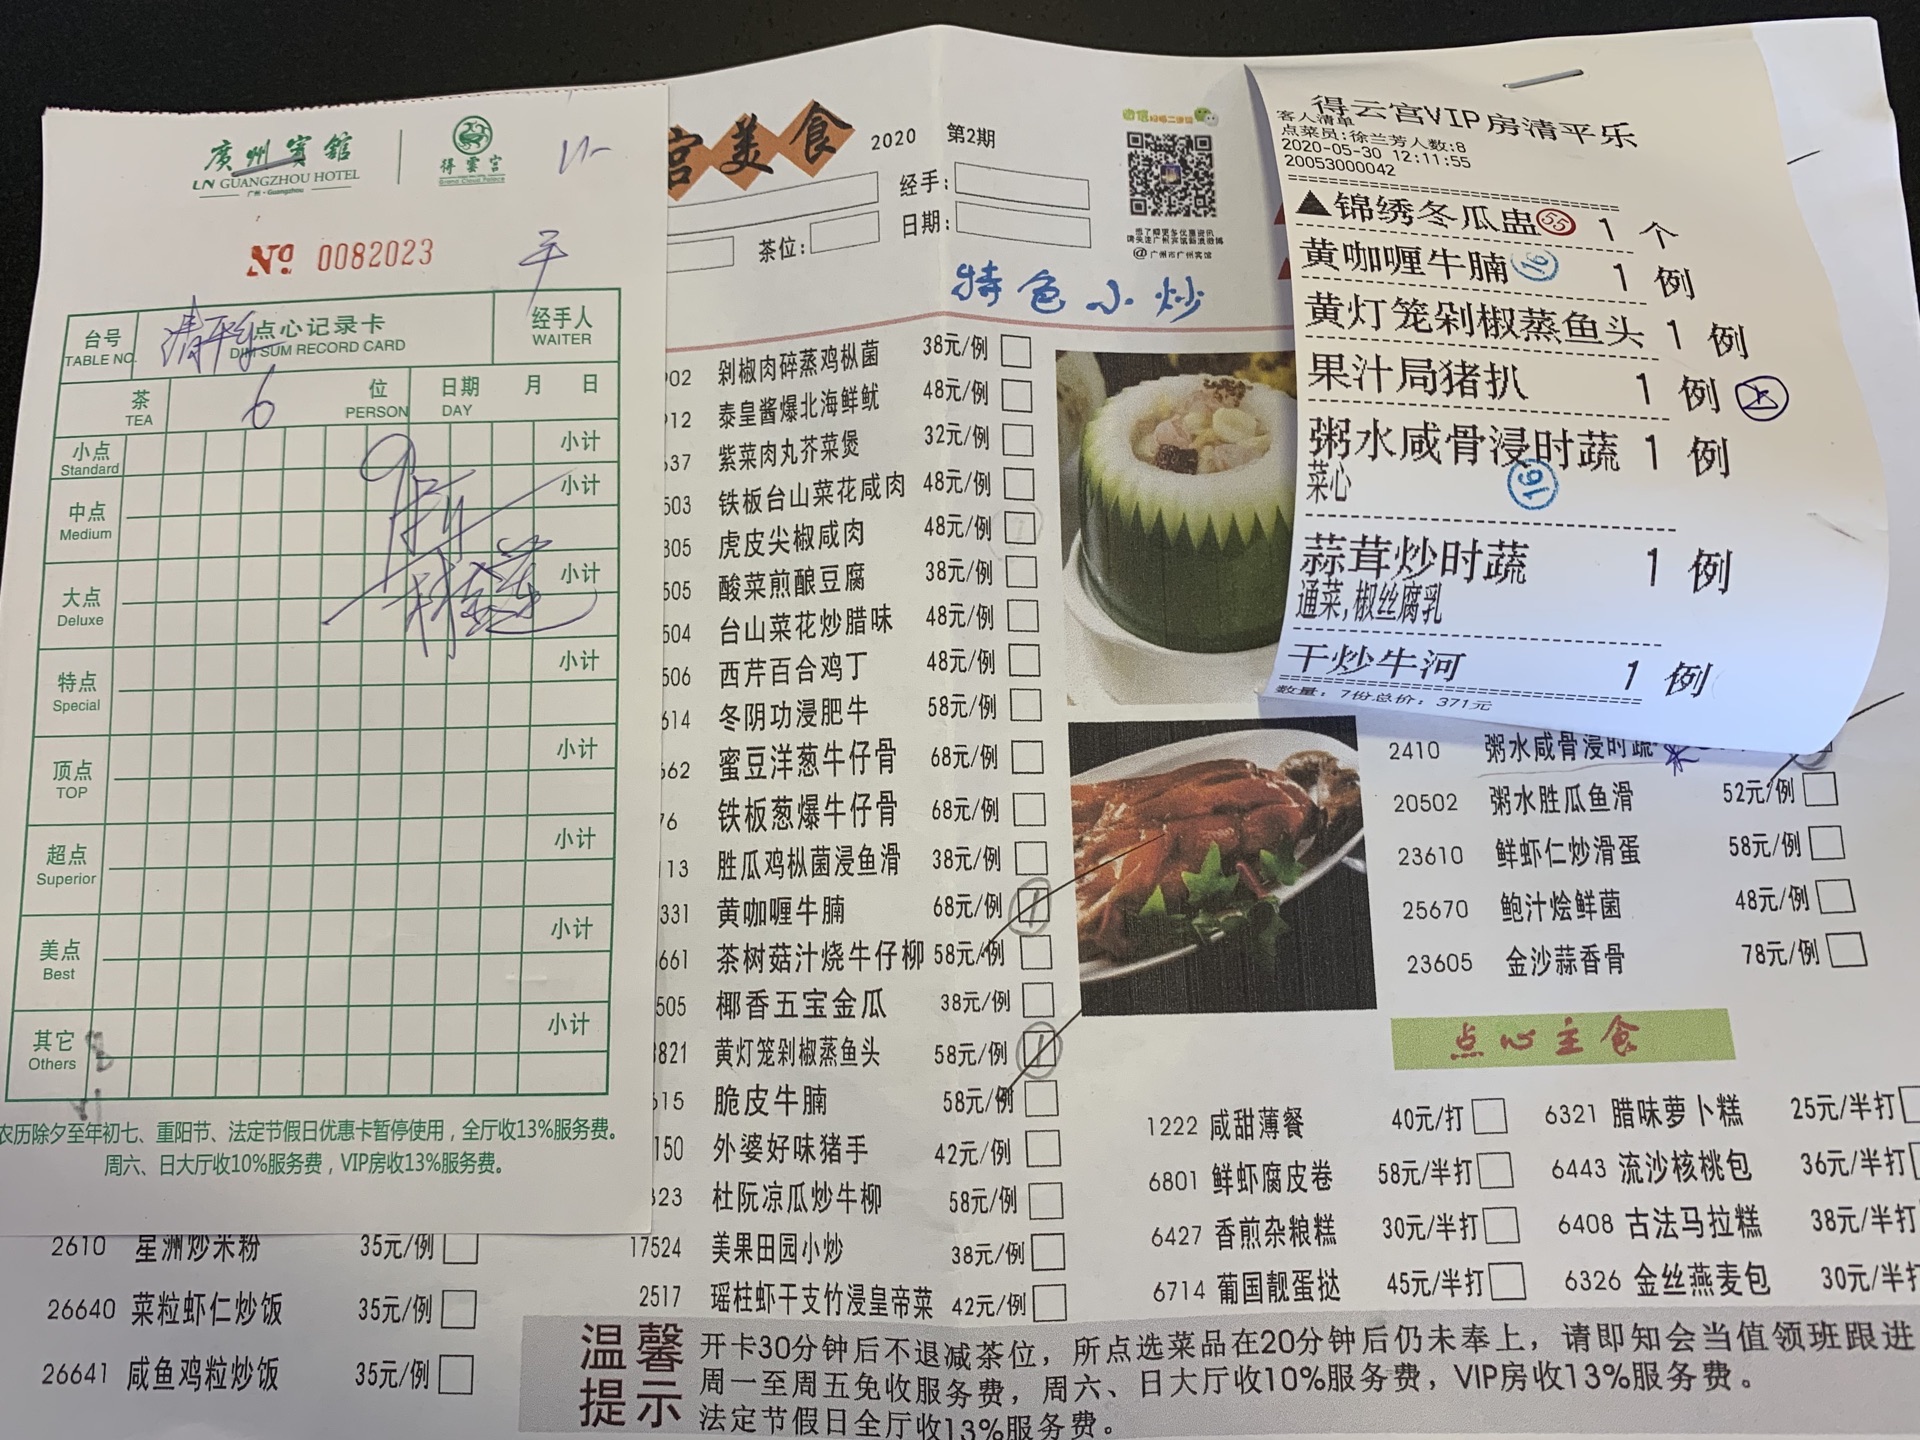 廣州賓館
LN GUANGZHOU HOTEL
广州·Guangzhou
得雲宮
Grand Cloud Palace
№ 0082023
台号
TABLE NO.
清平乐
点心记录卡
DIM SUM RECORD CARD
经手人
WAITER
茶
TEA
6
位
PERSON
日期 月 日
DAY
小点
Standard
小计
中点
Medium
小计
大点
Deluxe
小计
特点
Special
小计
顶点
TOP
小计
超点
Superior
小计
美点
Best
小计
其它
Others
小计
农历除夕至年初七、重阳节、法定节假日优惠卡暂停使用，全厅收13%服务费。
周六、日大厅收10%服务费，VIP房收13%服务费。
2610 星洲炒米粉 35元/例
26640 菜粒虾仁炒饭 35元/例
26641 咸鱼鸡粒炒饭 35元/例
宫美食
2020 第2期
经手：
茶位：
日期：
@广州市广州宾馆
特色小炒
902 剁椒肉碎蒸鸡枞菌 38元/例
912 泰皇酱爆北海鲜鱿 48元/例
637 紫菜肉丸芥菜煲 32元/例
503 铁板台山菜花咸肉 48元/例
305 虎皮尖椒咸肉 48元/例
505 酸菜煎酿豆腐 38元/例
504 台山菜花炒腊味 48元/例
506 西芹百合鸡丁 48元/例
614 冬阴功浸肥牛 58元/例
662 蜜豆洋葱牛仔骨 68元/例
76 铁板葱爆牛仔骨 68元/例
113 胜瓜鸡枞菌浸鱼滑 38元/例
331 黄咖喱牛腩 68元/例 1
661 茶树菇汁烧牛仔柳 58元/例
505 椰香五宝金瓜 38元/例
3821 黄灯笼剁椒蒸鱼头 58元/例 1
615 脆皮牛腩 58元/例
150 外婆好味猪手 42元/例
323 杜阮凉瓜炒牛柳 58元/例
17524 美果田园小炒 38元/例
2517 瑶柱虾干支竹浸皇帝菜 42元/例
得云宫VIP房清平乐
客人清单
点菜员:徐兰芳人数:8
2020-05-30 12:11:55
20053000042
▲锦绣冬瓜盅 55 1 个
黄咖喱牛腩 16 1 例
黄灯笼剁椒蒸鱼头 1 例
果汁局猪扒 1 例
粥水咸骨浸时蔬 1 例
菜心
16
蒜茸炒时蔬 1 例
通菜,椒丝腐乳
干炒牛河 1 例
数量：7份总价：371元
2410 粥水咸骨浸时蔬
20502 粥水胜瓜鱼滑 52元/例
23610 鲜虾仁炒滑蛋 58元/例
25670 鲍汁烩鲜菌 48元/例
23605 金沙蒜香骨 78元/例
点心主食
1222 咸甜薄餐 40元/打
6801 鲜虾腐皮卷 58元/半打
6427 香煎杂粮糕 30元/半打
6714 葡国靓蛋挞 45元/半打
6321 腊味萝卜糕 25元/半打
6443 流沙核桃包 36元/半打
6408 古法马拉糕 38元/半打
6326 金丝燕麦包 30元/半打
温馨提示
开卡30分钟后不退减茶位，所点选菜品在20分钟后仍未奉上，请即知会当值领班跟进
周一至周五免收服务费，周六、日大厅收10%服务费，VIP房收13%服务费。
法定节假日全厅收13%服务费。